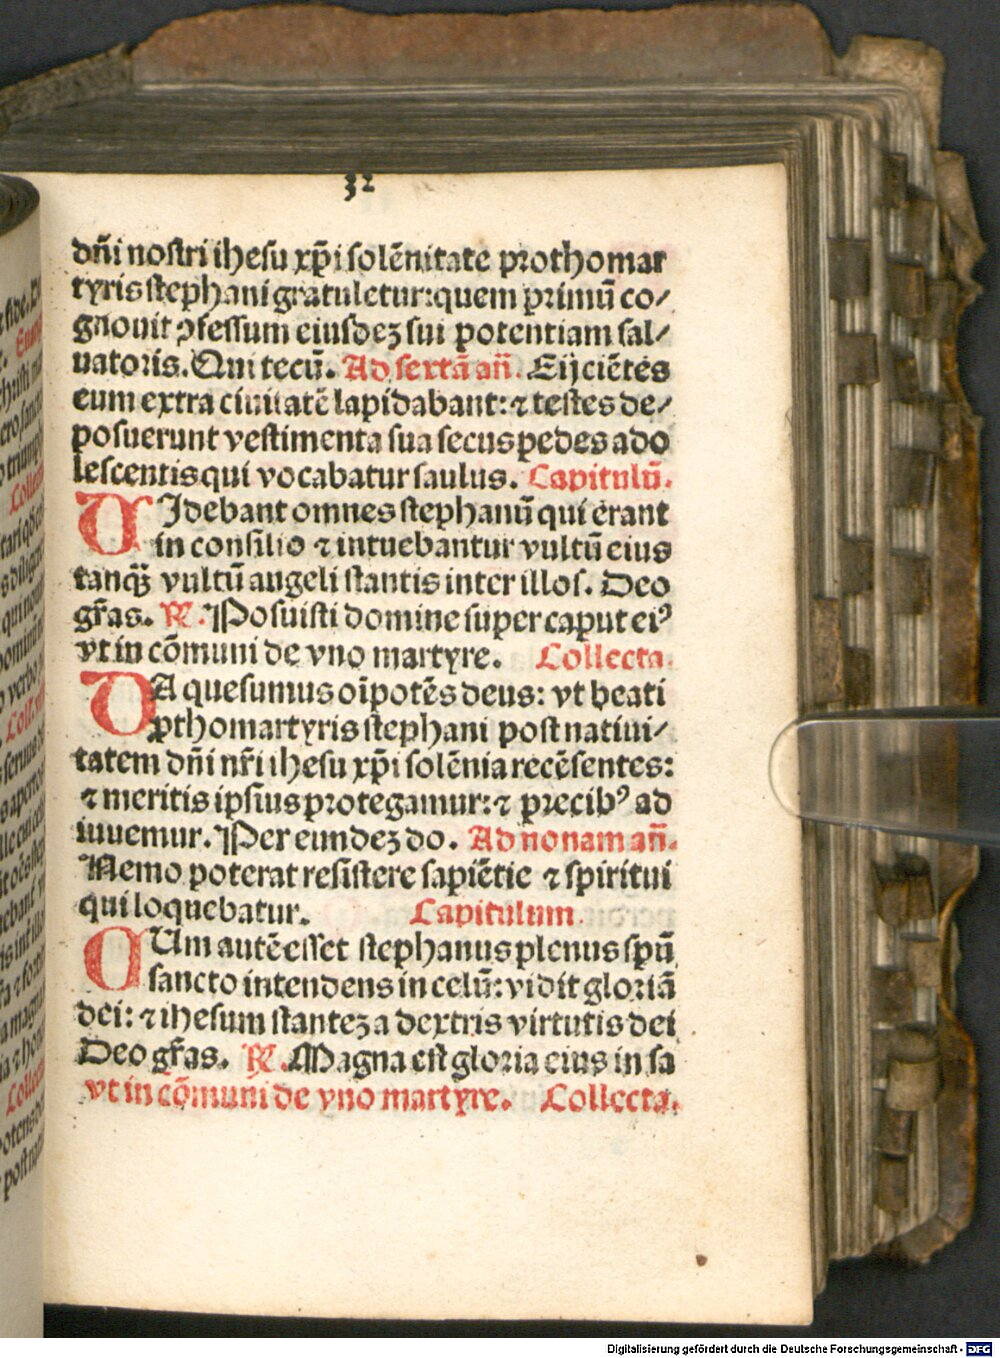 32
dñi nostri ihesu xp̄i solēnitate prothomar
tyris stephani gratuletur: quem primū co/
gnouit ꝯfessum eiusdeꝫ sui potentiam sal/
uatoris. Qui tecū. Ad sextā añ. Eijciētes
eum extra ciuitatē lapidabant: ⁊ testes de/
posuerunt vestimenta sua secus pedes ado
lescentis qui vocabatur saulus. Capitulū.
UIdebant omnes stephanū qui erant
in consilio ⁊ intuebantur vultū eius
tanqꝫ vultū angeli stantis inter illos. Deo
gr̄as. R̃. Posuisti domine super caput eiꝰ
vt in cōmuni de vno martyre. Collecta.
DA quesumus oīpotēs deus: vt beati
ꝓthomartyris stephani post natiui/
tatem dñi nr̄i ihesu xp̄i solēnia recēsentes:
⁊ meritis ipsius protegamur: ⁊ precibꝰ ad
iuuemur. Per eundeꝫ do. Ad nonam añ.
Nemo poterat resistere sapiētie ⁊ spiritui
qui loquebatur. Capitulum.
CUm autē esset stephanus plenus spū
sancto intendens in celū: vidit gloriā
dei: ⁊ ihesum stanteꝫ a dextris virtutis dei
Deo gr̄as. R̃. Magna est gloria eius in sa
vt in cōmuni de vno martyre. Collecta.
Digitalisierung gefördert durch die Deutsche Forschungsgemeinschaft - DFG